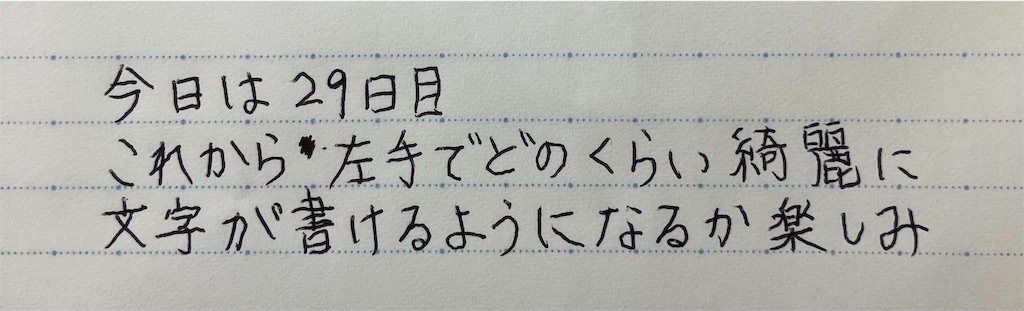 今日は29日目
これから左手でどのくらい綺麗に
文字が書けるようになるか楽しみ